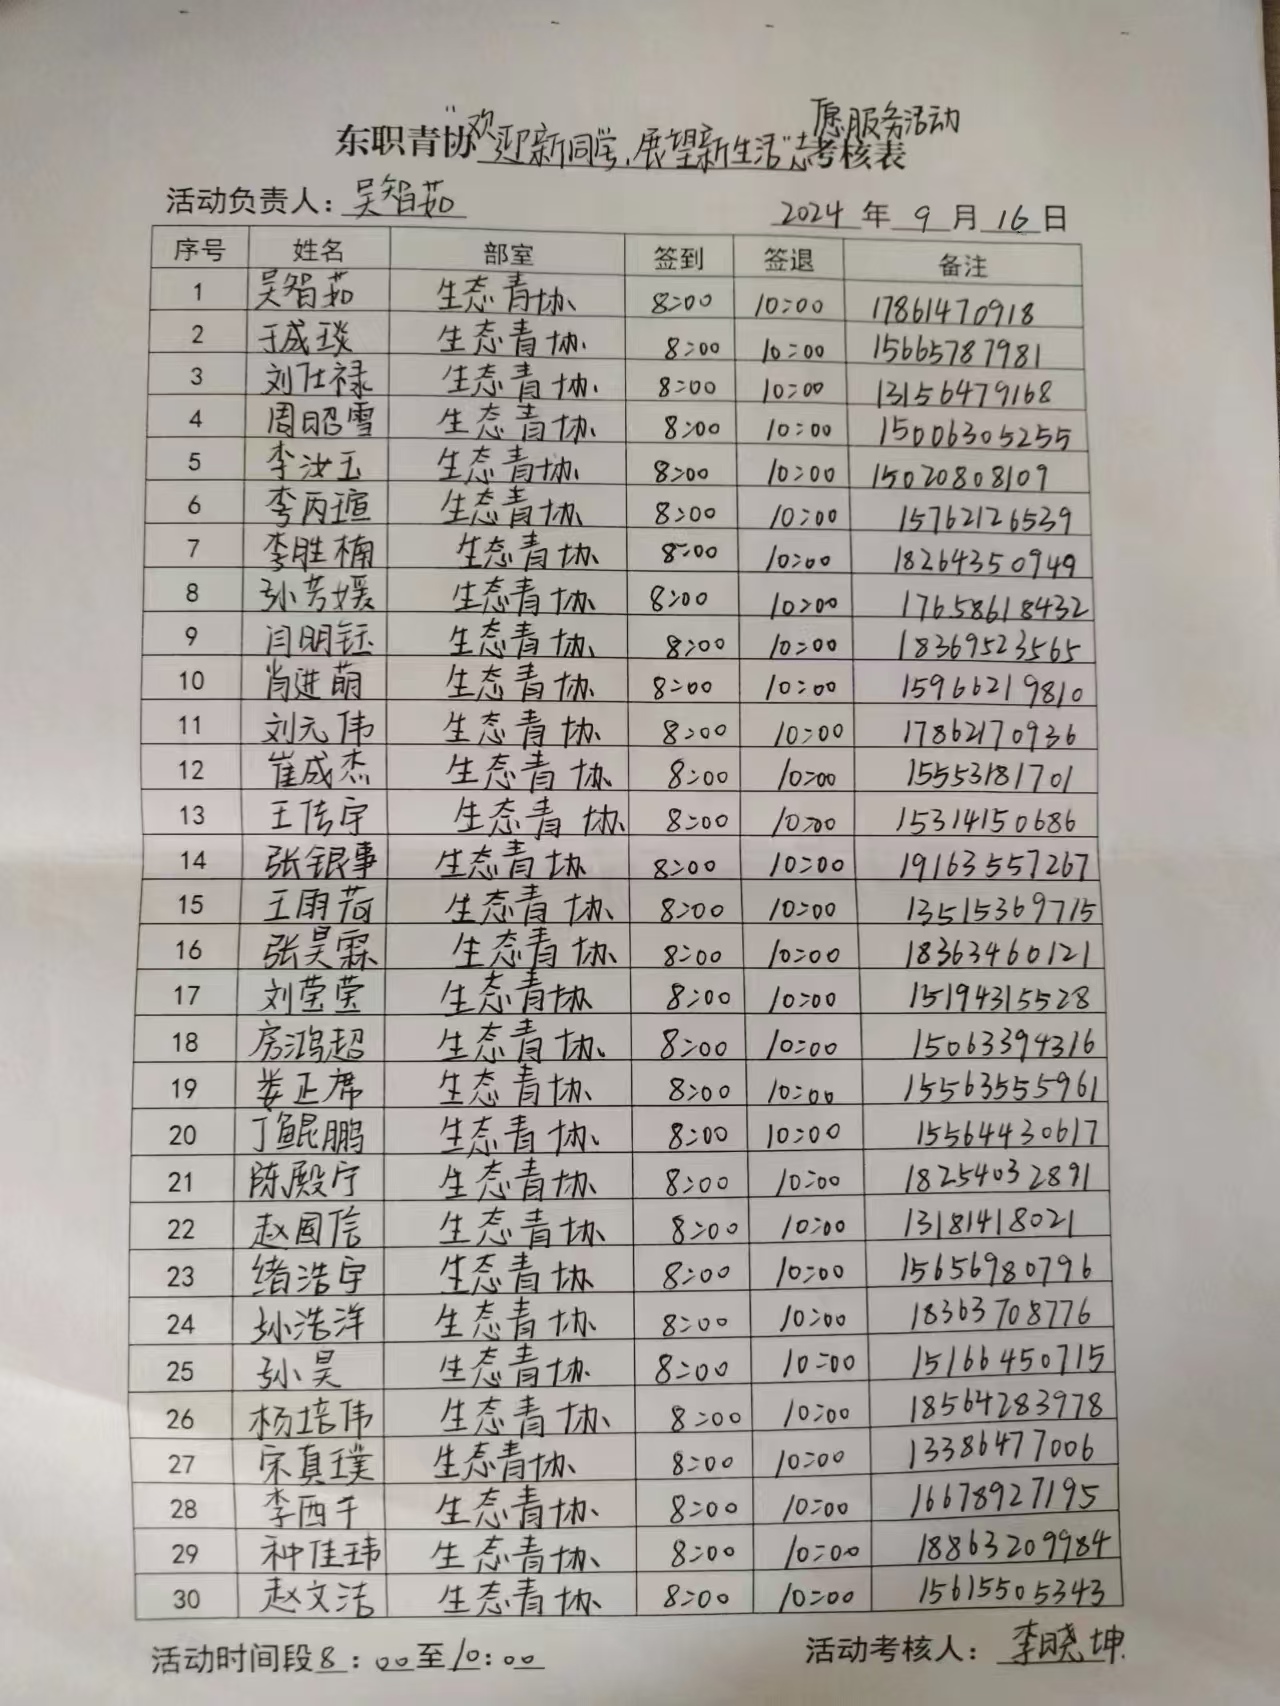 东职青协“欢迎新同学,展望新生活”志愿服务活动考核表
活动负责人:吴智茹
2024年9月16日
序号 姓名 部室 签到 签退 备注
1 吴智茹 生态青协 8:00 10:00 17861470918
2 于成琰 生态青协 8:00 10:00 15665787981
3 刘仕禄 生态青协 8:00 10:00 13156479168
4 周昭雪 生态青协 8:00 10:00 15006305255
5 李汝玉 生态青协 8:00 10:00 15020808109
6 李丙瑄 生态青协 8:00 10:00 15762126539
7 李胜楠 生态青协 8:00 10:00 18264350949
8 孙芳媛 生态青协 8:00 10:00 17658618432
9 闫明钰 生态青协 8:00 10:00 18369523565
10 肖进萌 生态青协 8:00 10:00 15966219810
11 刘元伟 生态青协 8:00 10:00 17862170936
12 崔成杰 生态青协 8:00 10:00 15553181701
13 王传宇 生态青协 8:00 10:00 15314150686
14 张银事 生态青协 8:00 10:00 19163557267
15 王雨荷 生态青协 8:00 10:00 13515369715
16 张昊霖 生态青协 8:00 10:00 18363460121
17 刘莹莹 生态青协 8:00 10:00 15194315528
18 房鸿超 生态青协 8:00 10:00 15063394316
19 娄正席 生态青协 8:00 10:00 15563555961
20 丁鲲鹏 生态青协 8:00 10:00 15564430617
21 陈殿宁 生态青协 8:00 10:00 18254032891
22 赵国信 生态青协 8:00 10:00 13181418021
23 绪浩宇 生态青协 8:00 10:00 15656980796
24 孙浩洋 生态青协 8:00 10:00 18363708776
25 孙昊 生态青协 8:00 10:00 15166450715
26 杨培伟 生态青协 8:00 10:00 18564283978
27 宋真璞 生态青协 8:00 10:00 13386477006
28 李西千 生态青协 8:00 10:00 16678927195
29 种佳玮 生态青协 8:00 10:00 18863209984
30 赵文洁 生态青协 8:00 10:00 15615505343
活动时间段8:00至10:00
活动考核人:李晓坤